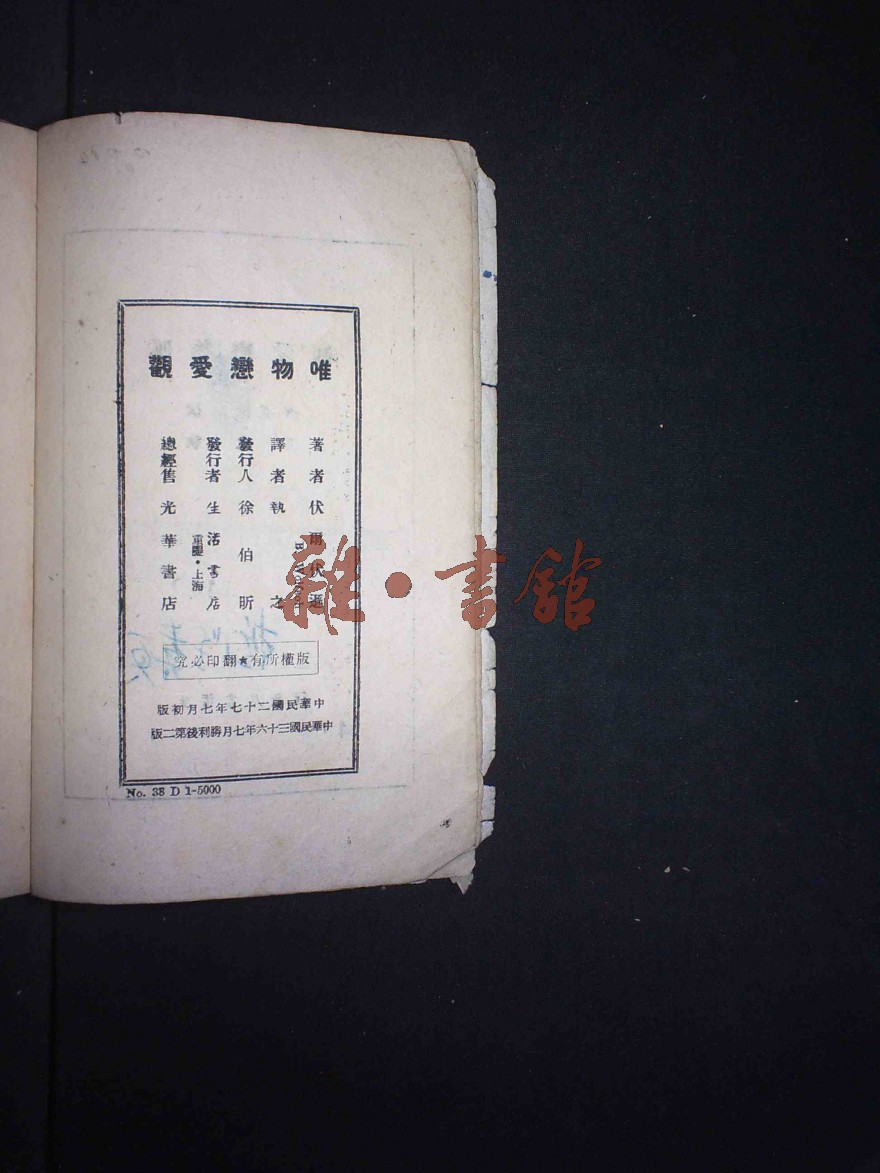 唯物戀愛觀
著者伏爾伏遜
譯者執之
發行人徐伯昕
發行者生活書店
重慶・上海
總經售光華書店
版權所有★翻印必究
中華民國二十七年七月初版
中華民國三十六年七月勝利後第二版
No. 38 D 1-5000
雜・書館